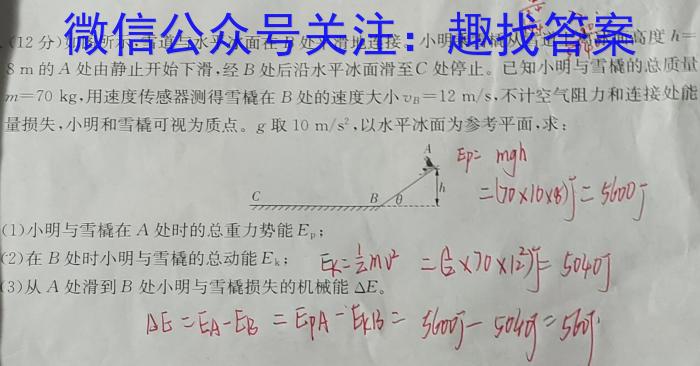 微信公众号关注：趣找答案
(12分)如图所示,雪道与水平冰面在B处平滑地连接。小明 高度h=
8 m的A处由静止开始下滑,经B处后沿水平冰面滑至C处停止。已知小明与雪橇的总质量
m=70 kg,用速度传感器测得雪橇在B处的速度大小v_B=12 m/s,不计空气阻力和连接处能
量损失,小明和雪橇可视为质点。g取10 m/s²,以水平冰面为参考平面,求:
A
C B θ h
Ep= mgh
=(70×10×8)J=5600J
(1)小明与雪橇在A处时的总重力势能E_p;
(2)在B处时小明与雪橇的总动能E_k;
Ek=½mv² =(½×70×12²)J=5040J
(3)从A处滑到B处小明与雪橇损失的机械能ΔE。
ΔE=EA-EB=EpA-EkB=5600J-5040J=560J